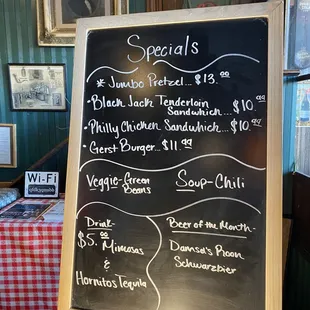 Specials
* Jumbo Pretzel... $13.00
• Black Jack Tenderloin
Sandwhich.... $10.99
• Philly Chicken Sandwhich.... $10.99
• Gerst Burger... $11.99
Veggie-Green
Beans
Soup-Chili
Drink-
$5.00 Mimosas
&
Hornitos Tequila
Beer of the Month-
Schwarzbier
Wi-Fi